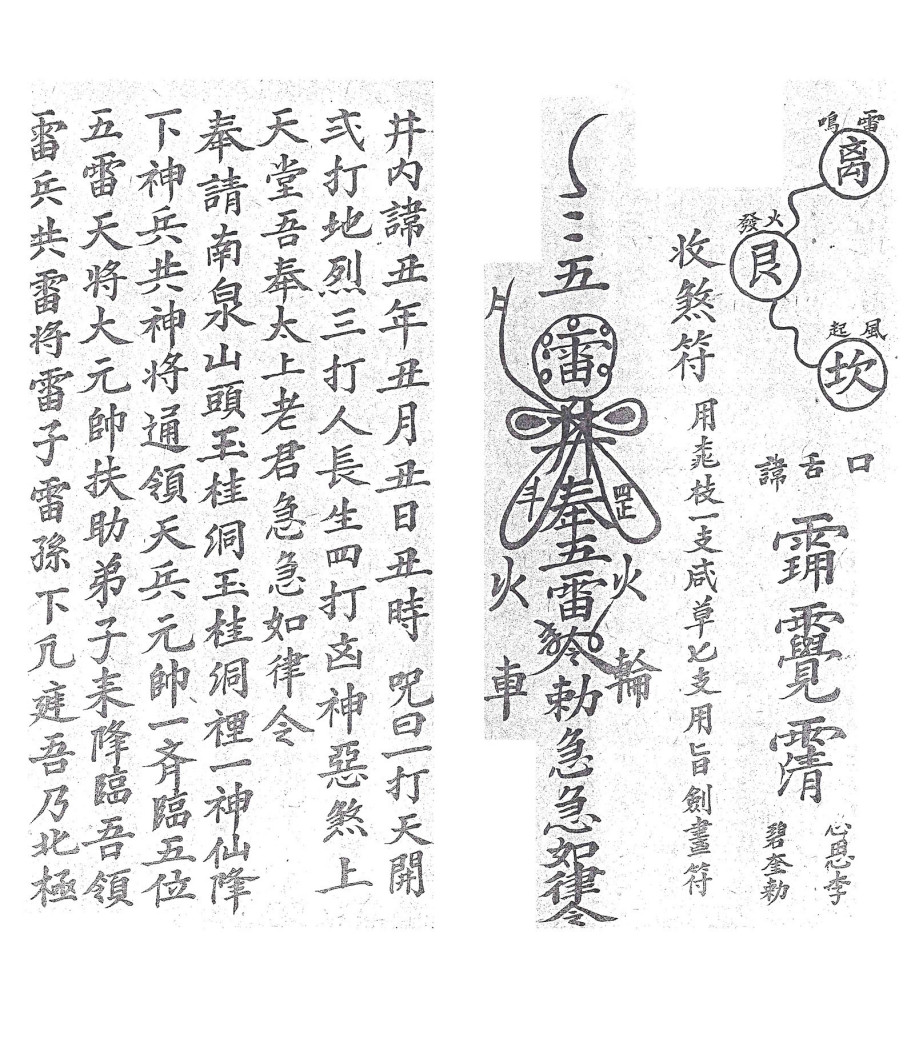 雷鳴
离
火發
艮
風起
坎
口舌諱
心思李
碧奎勅
收煞符
用桃枝一支咸草七支用旨劍畫符
二五
雷
井
奉五雷令勅急急如律令
罡
火輪
月
斗
火車
井内諱丑年丑月丑日丑時 呪曰一打天開
弍打地烈三打人長生四打凶神惡煞上
天堂吾奉太上老君急急如律令
奉請南泉山頭玉桂洞玉桂洞裡一神仙降
下神兵共神将通領天兵元帥一齊臨五位
五雷天将大元帥扶助弟子耒降臨吾領
雷兵共雷将雷子雷孫下凡吾乃北極